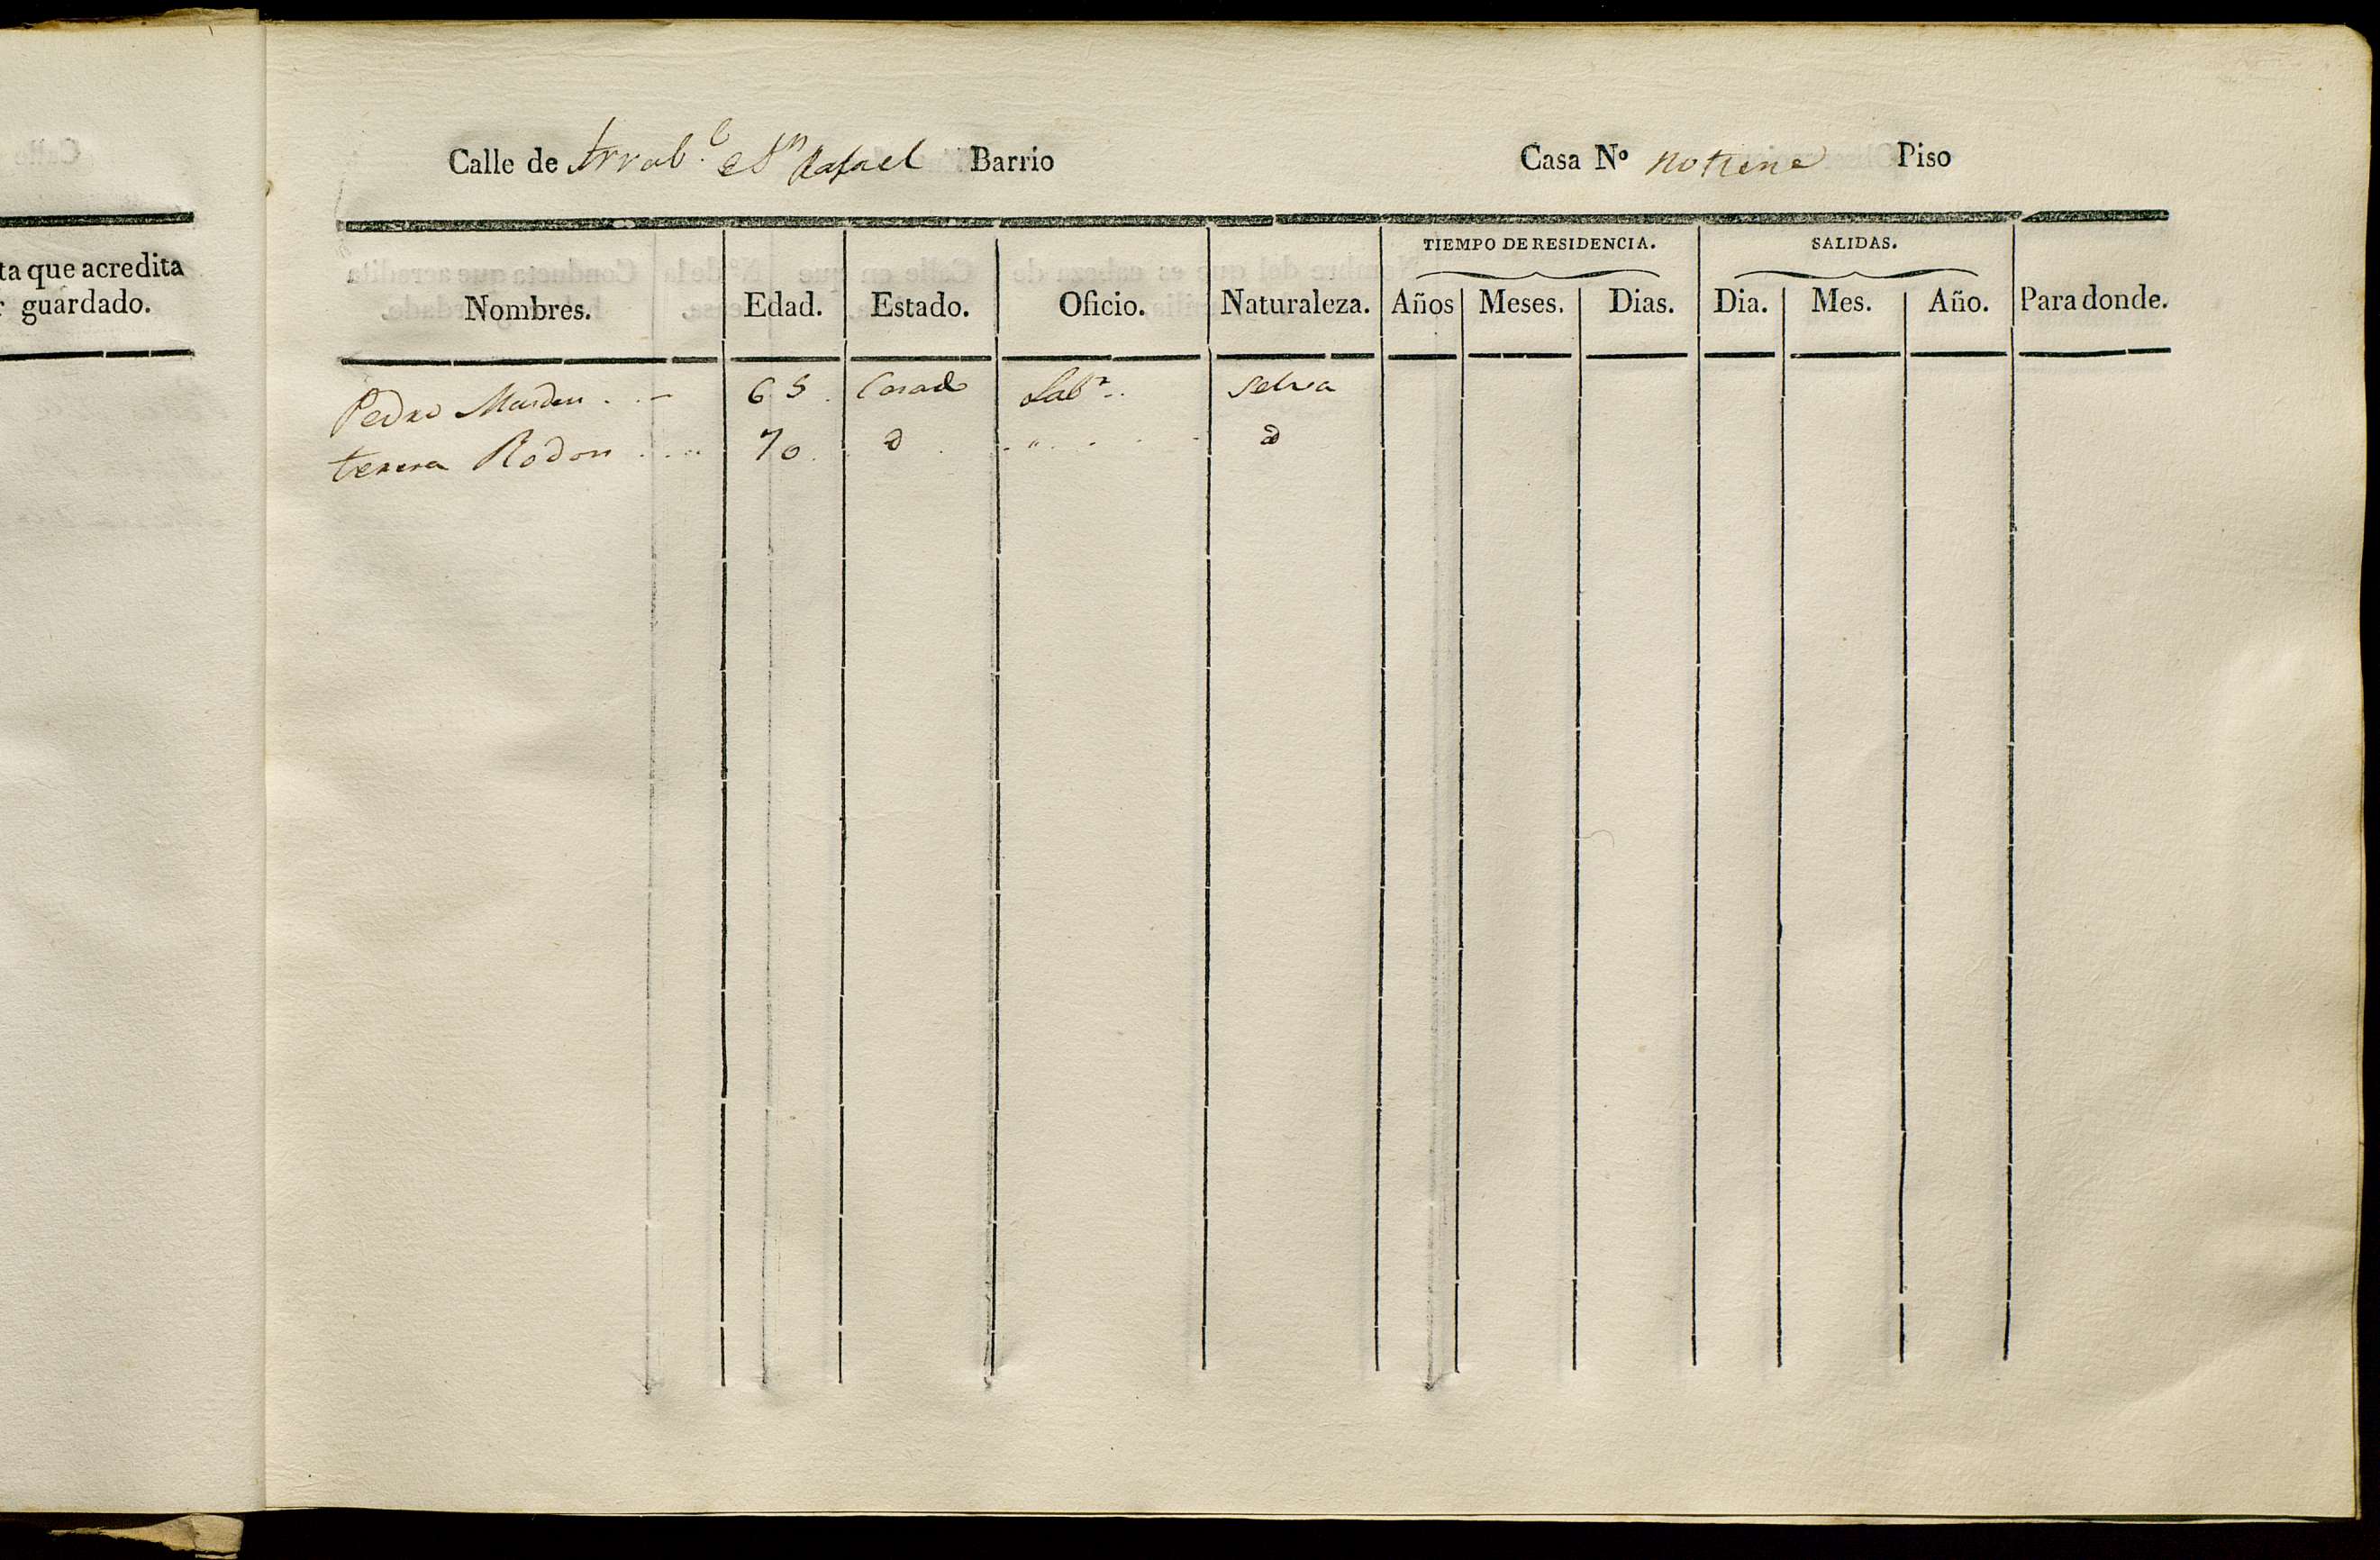 ta que acredita
guardado.
Calle de Arrab.l S.n Rafael Barrio
Casa Nº no tiene Piso
TIEMPO DE RESIDENCIA. SALIDAS.
Nombres. Edad. Estado. Oficio. Naturaleza. Años Meses. Dias. Dia. Mes. Año. Para donde.
Pedro 65 Casado Lab.r Selva
teresa Rodon 70 d " d